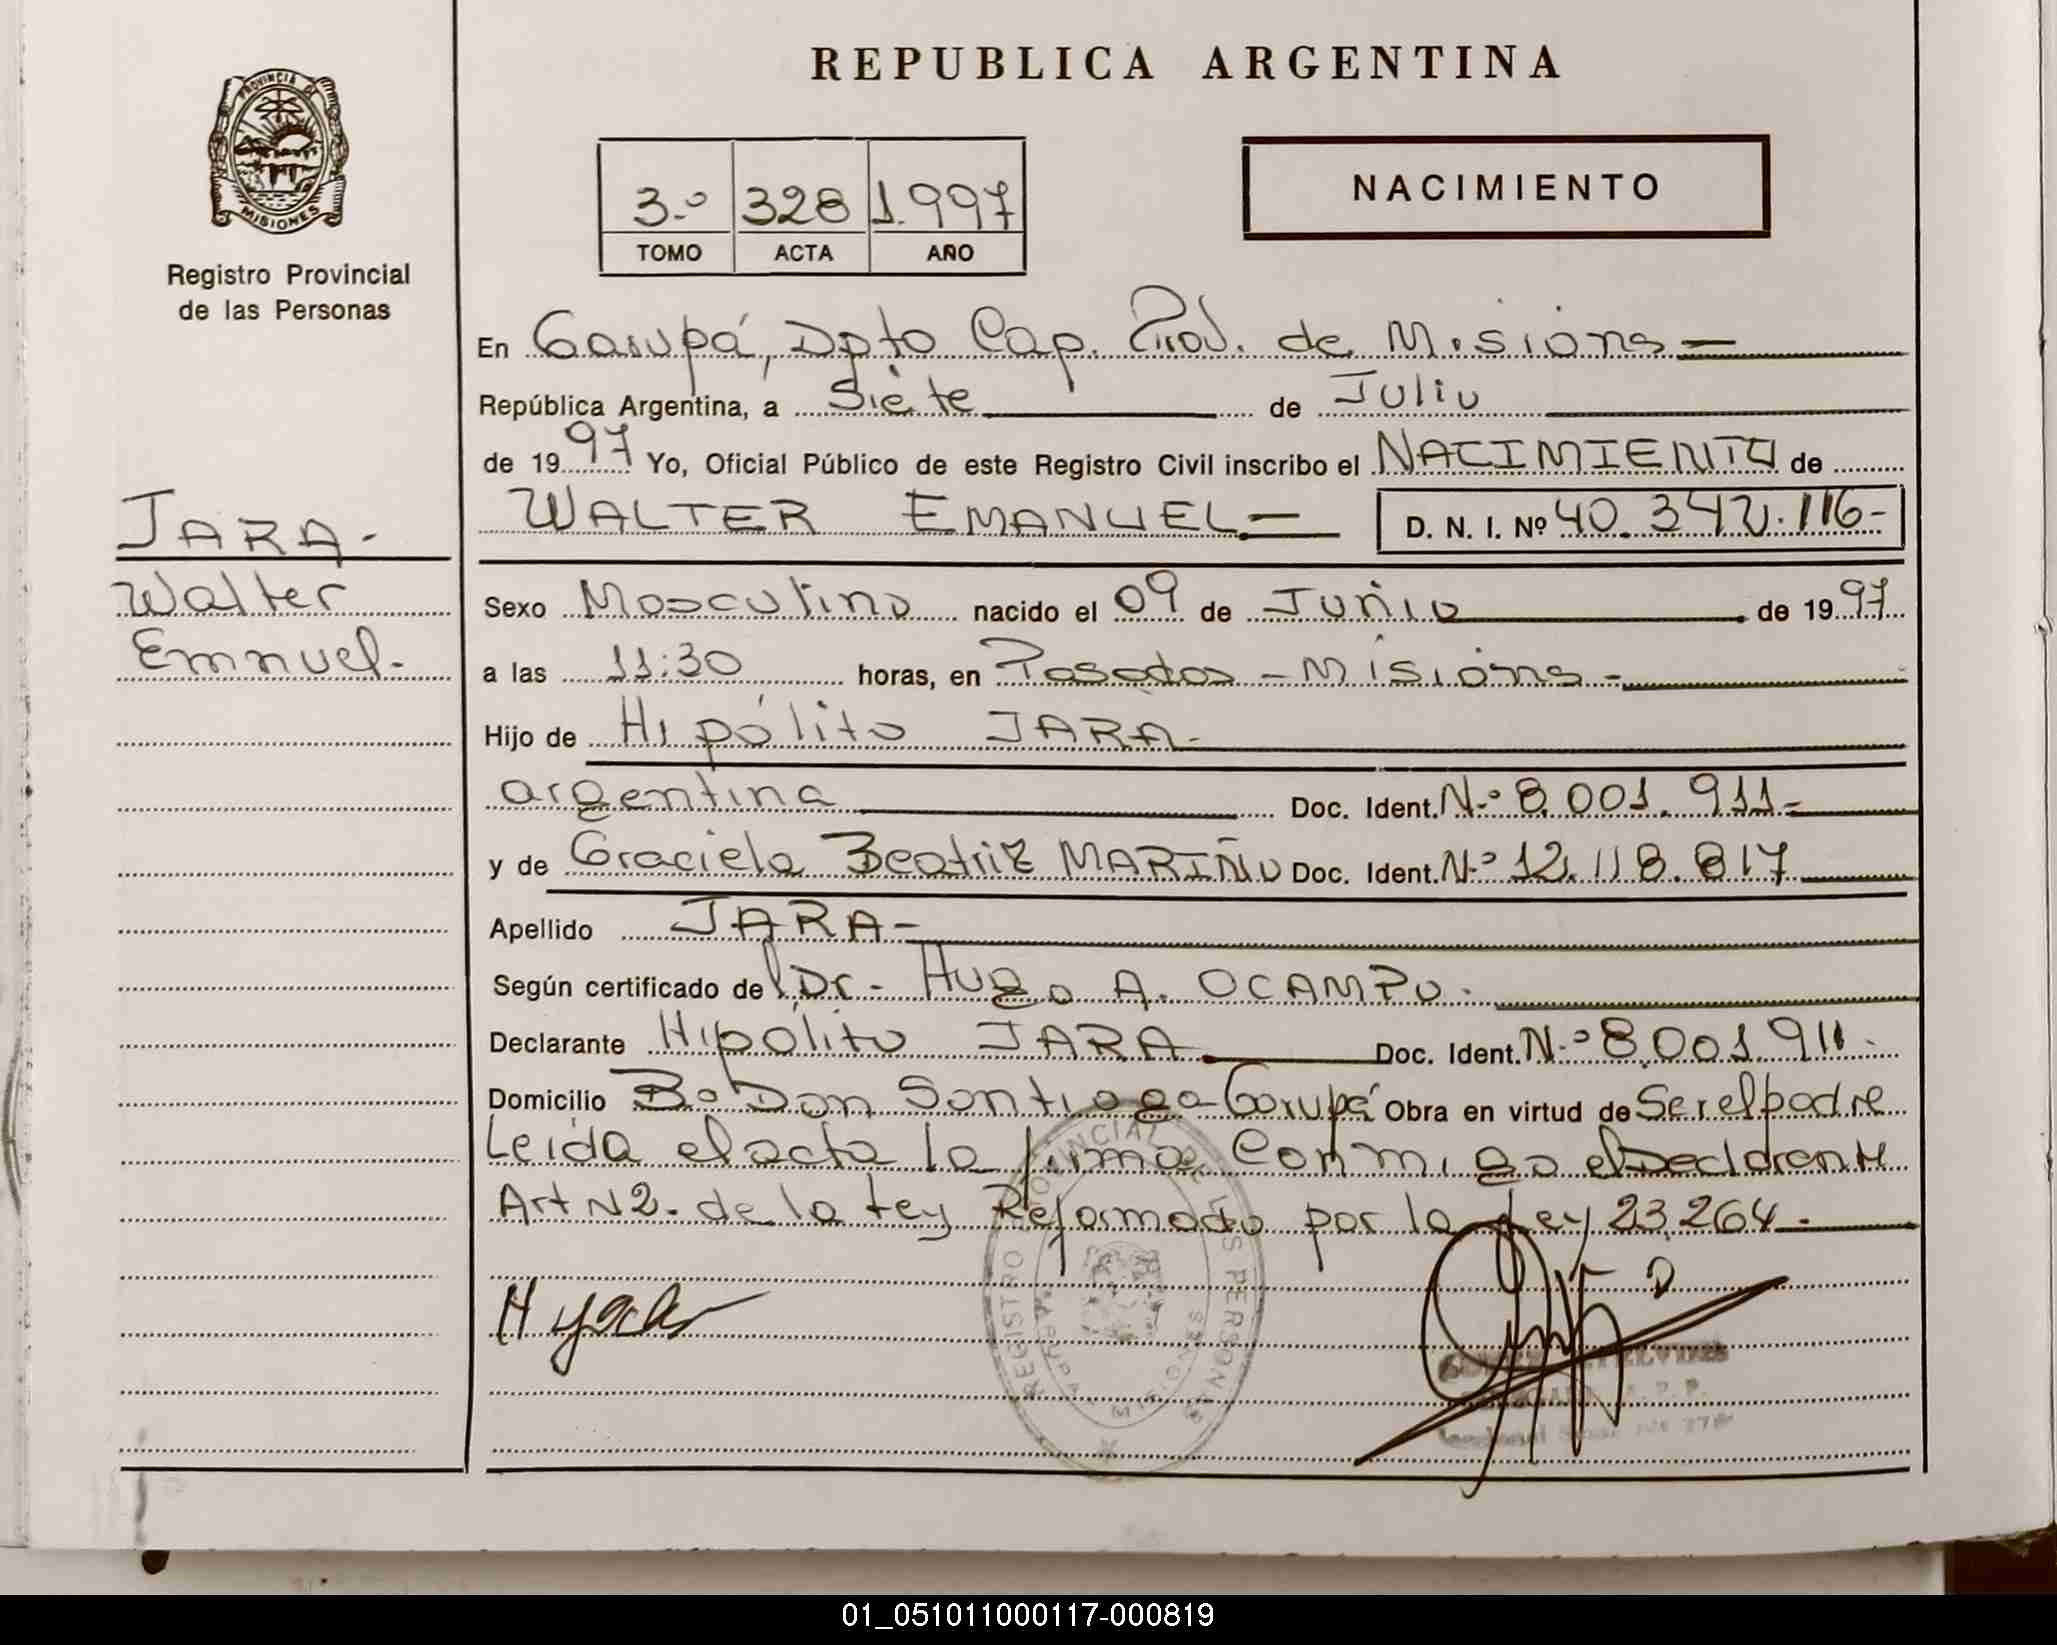 REPUBLICA ARGENTINA
PROVINCIA DE
MISIONES
Registro Provincial
de las Personas
3.º 328 1.997
TOMO ACTA AÑO
NACIMIENTO
En Garupá, Dpto Cap. Prov. de Misiones
República Argentina, a Siete de Julio
de 1997 Yo, Oficial Público de este Registro Civil inscribo el NACIMIENTO de
WALTER EMANUEL D. N. I. Nº 40.342.116-
JARA-
Walter
Emnuel-
Sexo Masculino nacido el 09 de Junio de 1997
a las 11:30 horas, en Posadas - Misiones -
Hijo de Hipólito JARA-
argentina Doc. Ident. N.º 8.001.911-
y de Graciela Beatriz MARIÑO Doc. Ident. N.º 12.118.817
Apellido JARA-
Según certificado de Dr. Hugo A. OCAMPO.
Declarante Hipólito JARA Doc. Ident. N.º 8.001.911.
Domicilio Bº Don Santiago-Garupá Obra en virtud de Ser el padre
Leida el acta la firma Conmigo el Declarante
Art Nº 2. de la Ley Reformado por la Ley 23.264.-
REGISTRO PROVINCIAL DE LAS PERSONAS
MISIONES
01_051011000117-000819